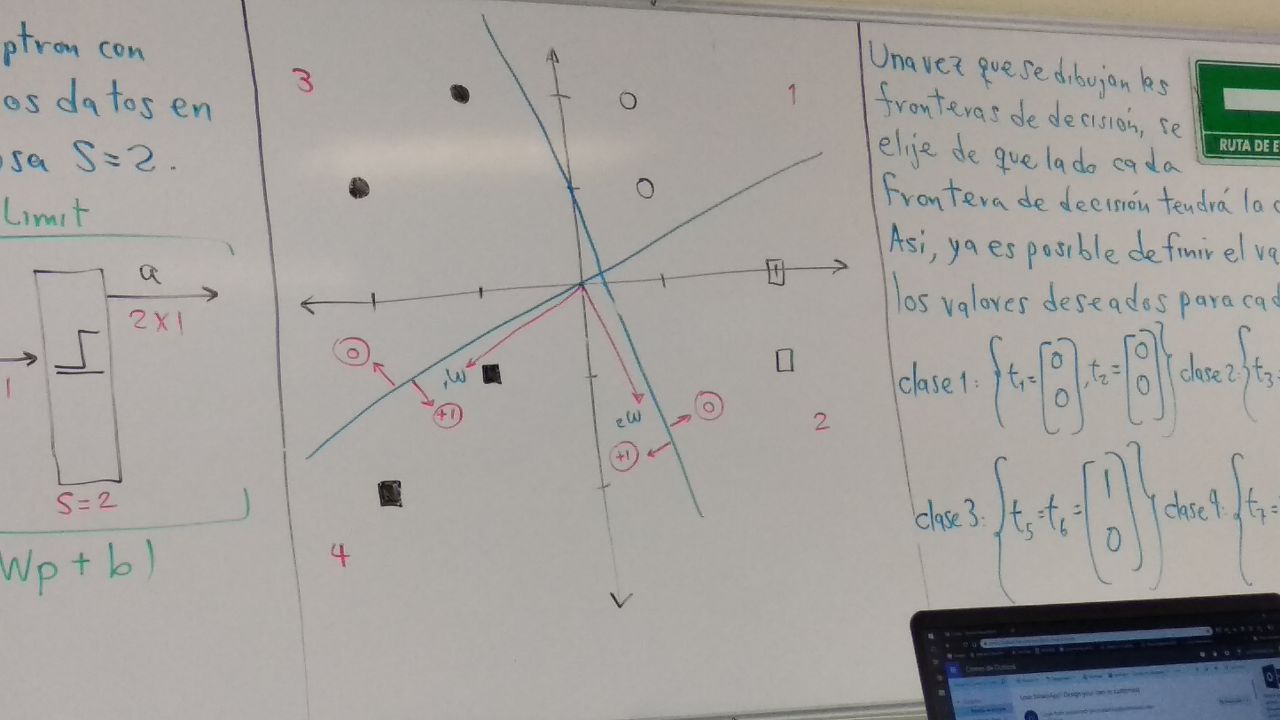 ptron con
os datos en
sa S=2.
Limit
a
2x1
1
S=2
Wp + b)
3
1
0
+1
1W
2W
0
+1
2
4
Una vez que se dibujan las
fronteras de decisión, se
elije de que lado cada
frontera de decisión tendrá la
Asi, ya es posible definir el va
los valores deseados para cad
clase 1: {t1=[0 0], t2=[0 0]} clase 2:{t3=
clase 3: {t5=t6=[1 0]} clase 4:{t7=
RUTA DE E